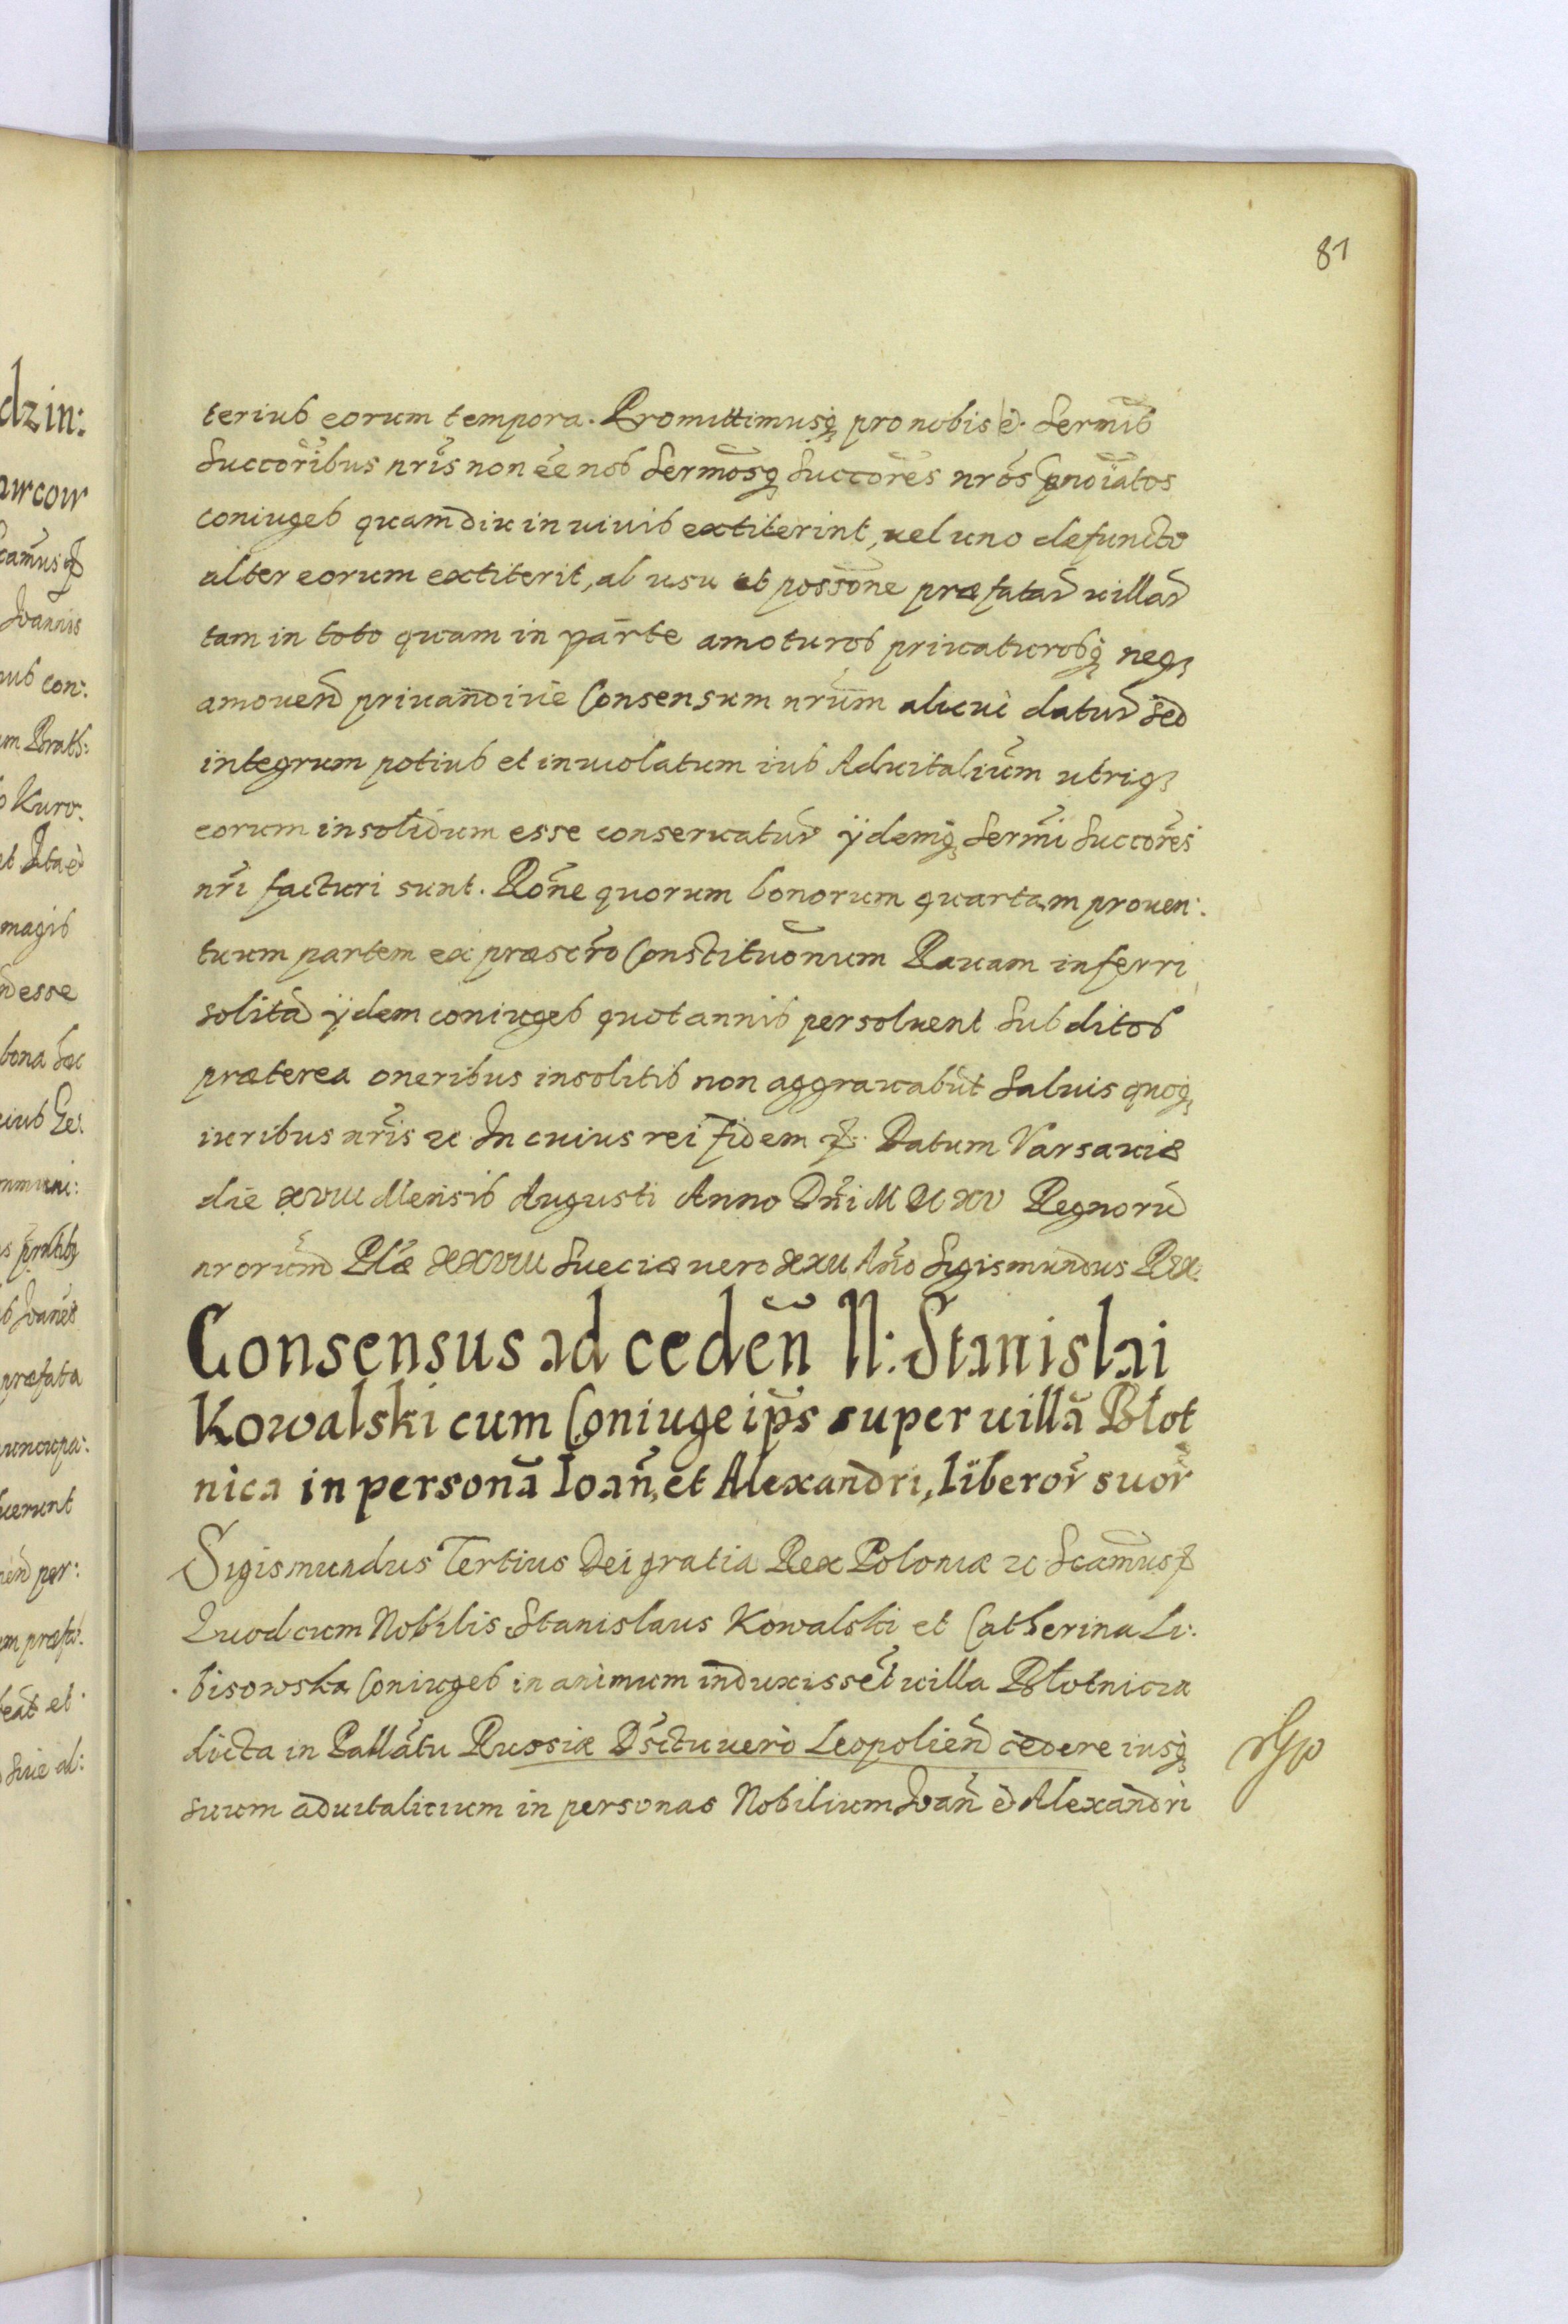 81
terius eorum tempora. Promittimusq pro nobis et Sermis
Succoribus nris non ee nos Sermosq Succores nros pnoiatos
coniuges quamdiu in uiuis extiterint, uel uno defuncto
alter eorum extiterit, ab usu et possone præfatar uillar
tam in toto quam in parte amoturos priuaturosq neq
amouen priuandiue Consensum nrum alicui datur sed
integrum potius et inuiolatum ius Aduitalium utriq
eorum insolidum esse conseruatur ijdemq Sermi Succores
nri facturi sunt. Rone quorum bonorum quartam prouen:
tuum partem ex præscro Constituonum Rauam inferri
solita ijdem coniuges quotannis persoluent Subditos
præterea oneribus insolitis non aggrauabut Saluis quoq
iuribus nris etc In cuius rei fidem etc. Datum Varsauiæ
die xviii Mensis Augusti Anno Dni M DC XV Regnoru
nrorum Plæ XXVIII Sueciæ uero XXII Ano Sigismundus Rex.
Consensus ad ceden N: Stanislai
Kowalski cum Coniuge ips super uillã Błot
nica in personã Ioan, et Alexandri, liberor suor
Sigismundus Tertius Dei gratia Rex Poloniæ etc Scamus etc
Quod cum Nobilis Stanislaus Kowalski et Catherina Li:
bisowska Coniuges in animum induxisset uilla Błotnica
dicta in Pallatu Russiæ Dsctu uero Leopolien cedere iusq
suum aduitalicium in personas Nobilium Ioan et Alexandri